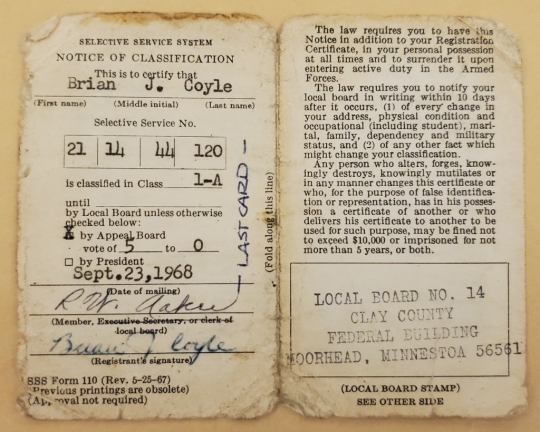 SELECTIVE SERVICE SYSTEM
NOTICE OF CLASSIFICATION
This is to certify that
Brian J. Coyle
(First name) (Middle initial) (Last name)
Selective Service No.
21 14 44 120
is classified in Class 1-A
until
by Local Board unless otherwise
checked below:
X by Appeal Board
vote of 5 to 0
□ by President
Sept. 23, 1968
(Date of mailing)
R W.
(Member, Executive Secretary, or clerk of
local board)
Brian J Coyle
(Registrant's signature)
SSS Form 110 (Rev. 5-25-67)
(Previous printings are obsolete)
(Approval not required)
— LAST CARD —
(Fold along this line)
The law requires you to have this
Notice in addition to your Registration
Certificate, in your personal possession
at all times and to surrender it upon
entering active duty in the Armed
Forces.
The law requires you to notify your
local board in writing within 10 days
after it occurs, (1) of every change in
your address, physical condition and
occupational (including student), mari-
tal, family, dependency and military
status, and (2) of any other fact which
might change your classification.
Any person who alters, forges, know-
ingly destroys, knowingly mutilates or
in any manner changes this certificate or
who, for the purpose of false identifica-
tion or representation, has in his posses-
sion a certificate of another or who
delivers his certificate to another to be
used for such purpose, may be fined not
to exceed $10,000 or imprisoned for not
more than 5 years, or both.
LOCAL BOARD NO. 14
CLAY COUNTY
FEDERAL BUILDING
MOORHEAD, MINNESTOA 56561
(LOCAL BOARD STAMP)
SEE OTHER SIDE